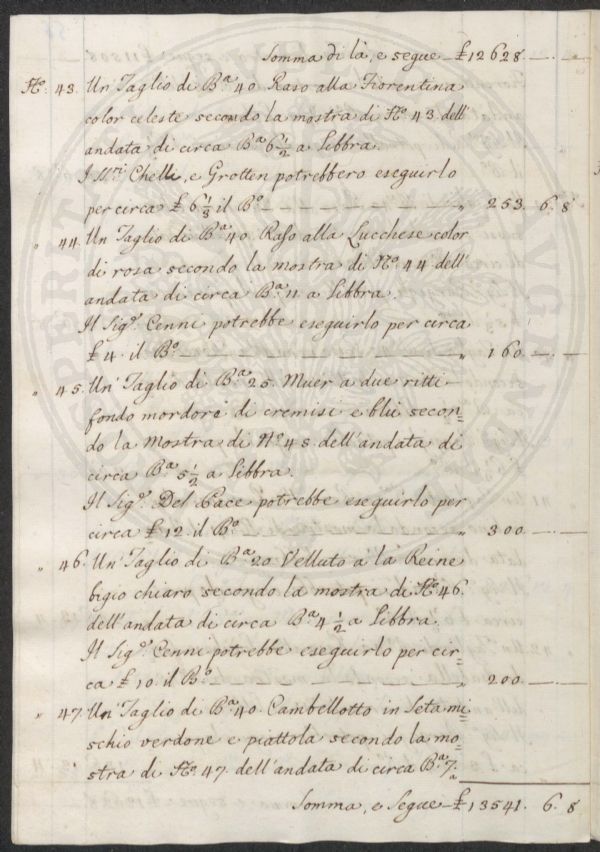 Somma di là, e segue £ 12628. — . —
Nº. 43. Un Taglio di Bª 40 Raso alla Fiorentina
color celeste secondo la mostra di Nº 43. dell'
andata di circa Bª 6 1/2 a Libbra.
I SS.ri Chelli, e Grotten potrebbero eseguirlo
per circa £ 6 1/3 il Bº — — — — — „ 253. 6. 8
„ 44. Un Taglio di Bª 40. Raso alla Lucchese color
di rosa secondo la mostra di Nº 44 dell'
andata di circa Bª 11 a Libbra.
Il Sigº. Cenni potrebbe eseguirlo per circa
£ 4. il Bº — — — — — „ 160. — . —
„ 45. Un Taglio di Bª 25. Muer a due ritti
fondo mordorè di cremisi e blù secon=
do la Mostra di Nº 45. dell'andata di
circa Bª 5 1/2 a Libbra.
Il Sigº. Del Pace potrebbe eseguirlo per
circa £ 12 il Bº „ 300. — . —
„ 46. Un Taglio di Bª 20 Velluto a la Reine
bigio chiaro secondo la mostra di Nº 46.
dell'andata di circa Bª 4 1/2 a Libbra.
Il Sigº. Cenni potrebbe eseguirlo per cir=
ca £ 10. il Bº — — — — — „ 200. — . —
„ 47. Un Taglio di Bª 40. Cambellotto in Seta mi=
schio verdone e piattola secondo la mo=
stra di Nº 47. dell'andata di circa Bª 7. a
Somma, e Segue £ 13541. 6. 8